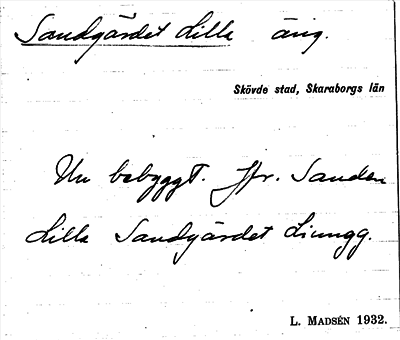 Sandgärdet Lilla äng.
Skövde stad, Skaraborgs län
Nu bebyggt. Jfr. Sanden
Lilla Sandgärdet Ljungg.
L. MADSÉN 1932.